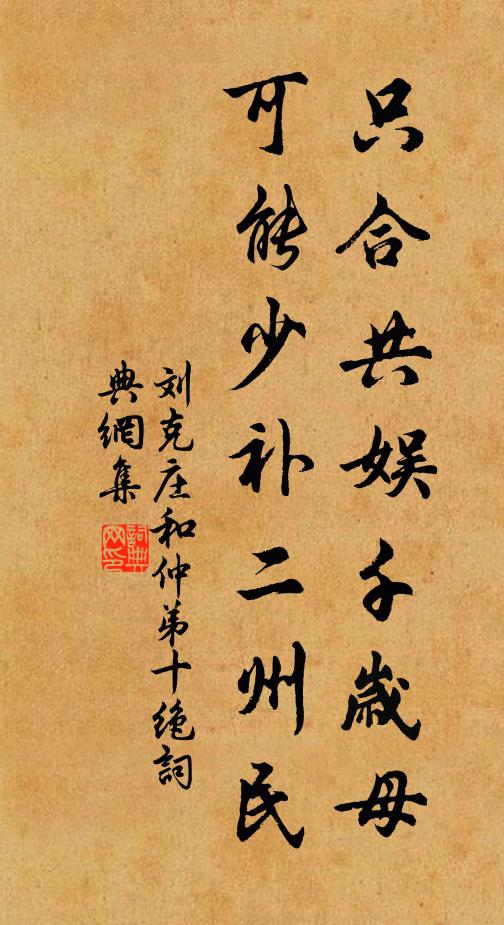 只合共娱千歲母
可能少补二州民
刘克庄和仲弟十绝詞
典網集
詞典
网印